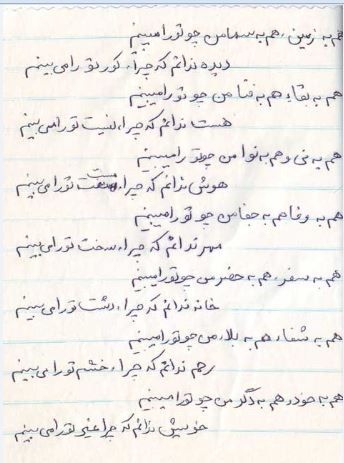 هم به زمین، هم به سما من چو تو را میبینم
دیده ندانم که چرا، کور تو را می بینم
هم به بقاء هم به فنا من چو تو را میبینم
هست ندانم که چرا، نیست تو را می بینم
هم به نی و هم به نوا من چو تو را میبینم
هوش ندانم که چرا، مست تو را می بینم
هم به وفا هم به جفا من چو تو را میبینم
مهر ندانم که چرا، سخت تو را می بینم
هم به سفر، هم به حضر من چو تو را میبینم
خانه ندانم که چرا، دشت تو را می بینم
هم به شفاء هم به بلاء، من چو تو را میبینم
رحم ندانم که چرا، خشم تو را می بینم
هم به خود، هم به دگر من چو تو را میبینم
خویش ندانم که چرا غیر تو را می بینم